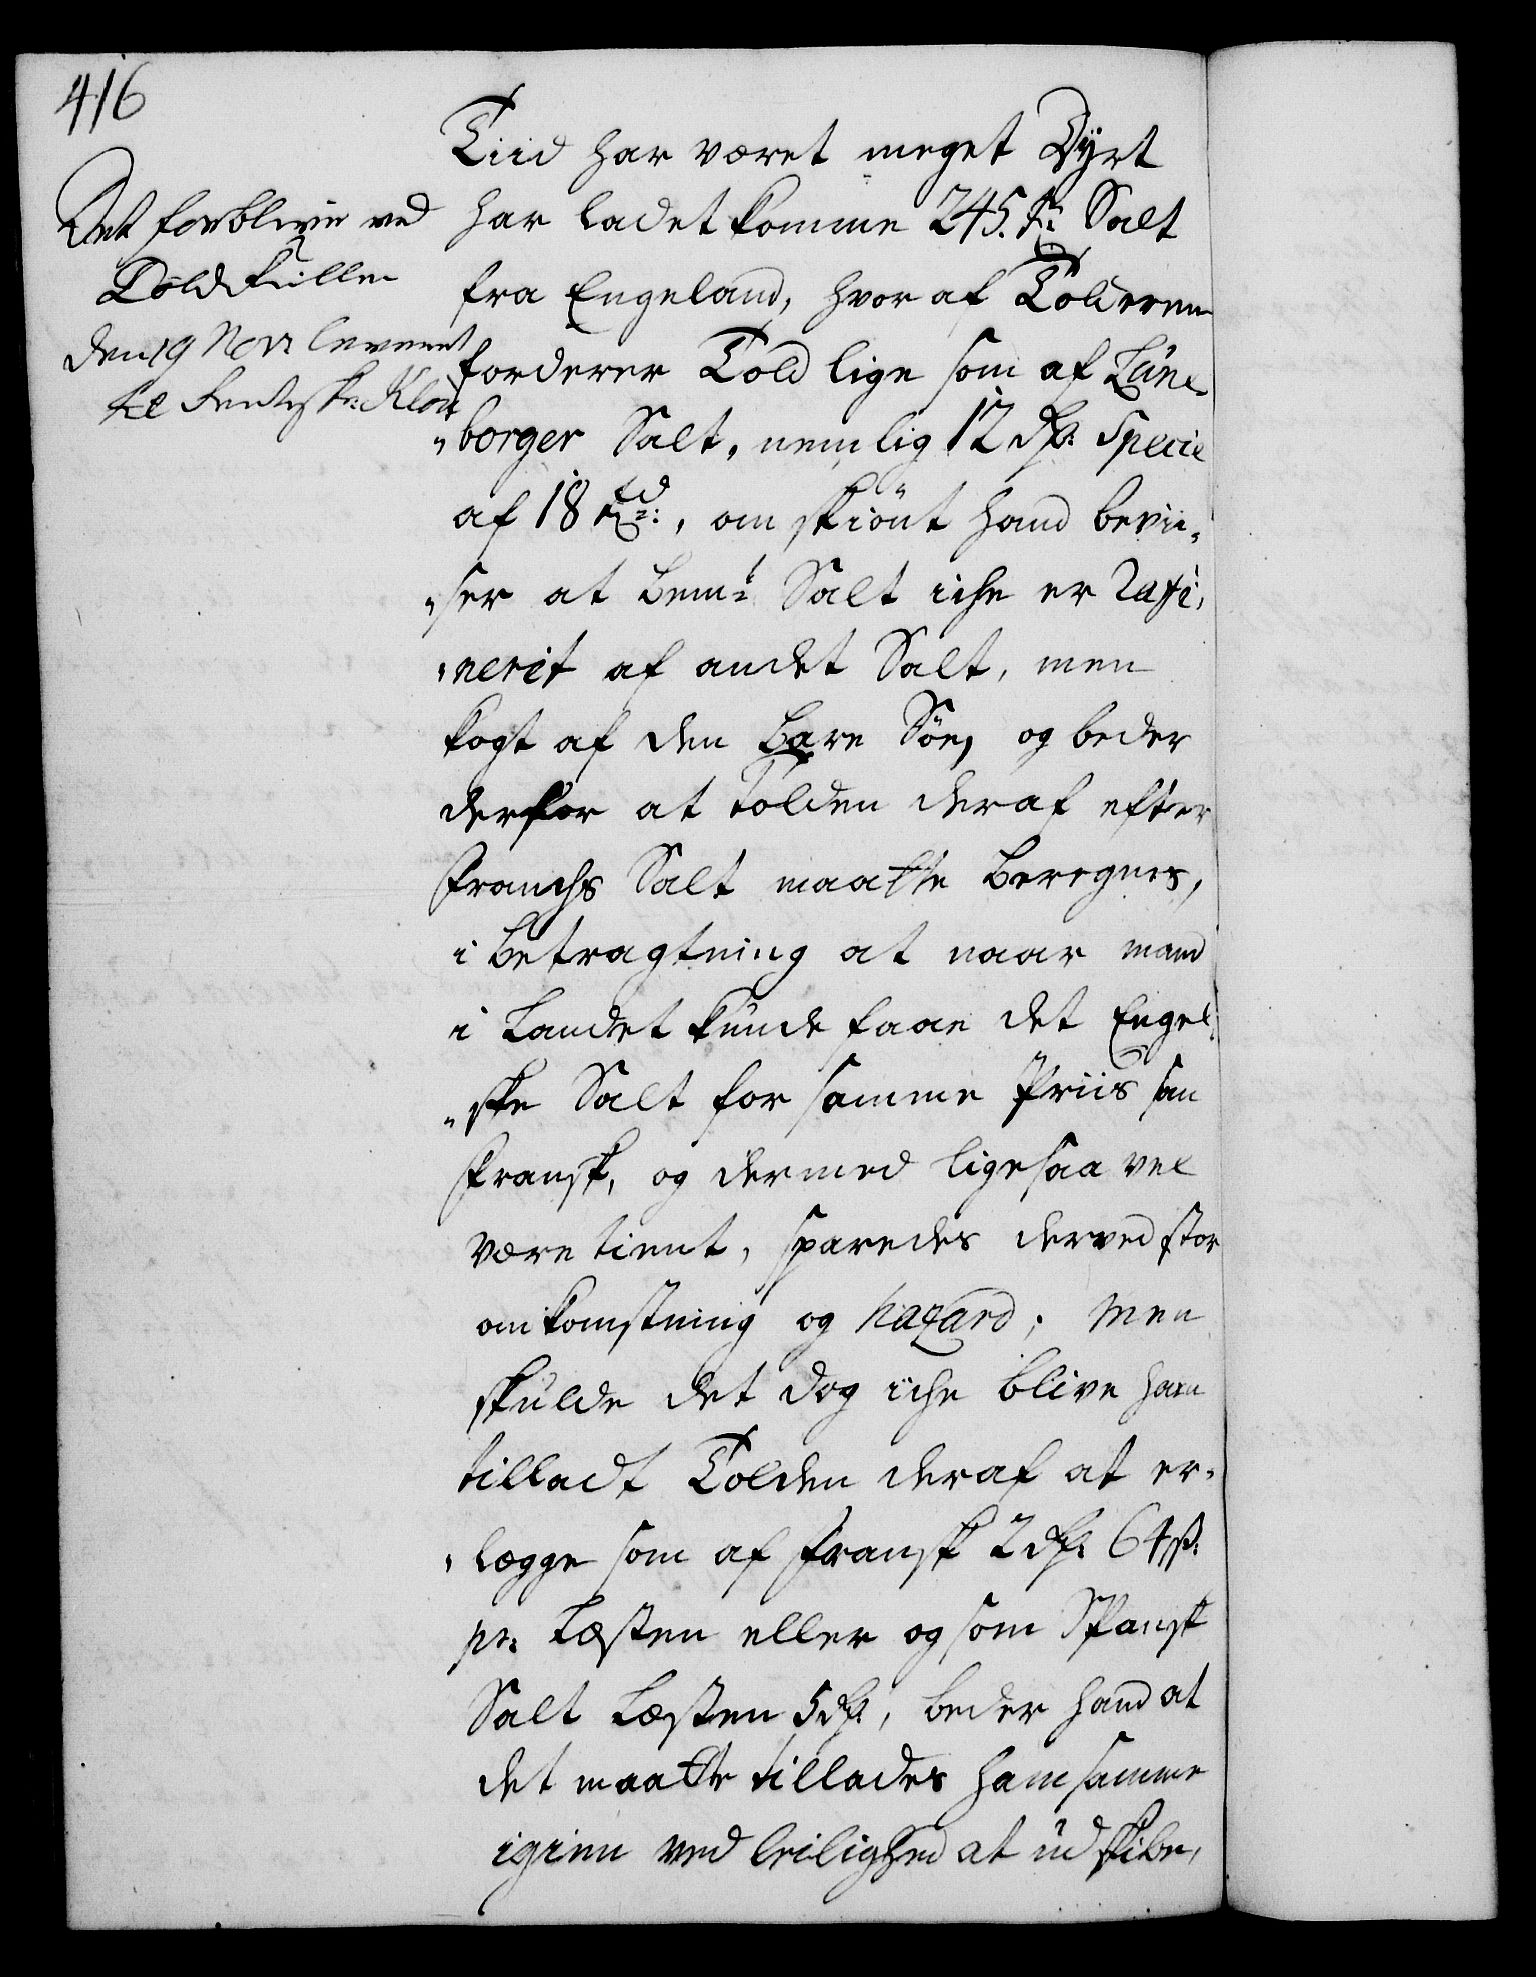 416
Det forblive ved
Told Rullen
den 19 Novr leveret
Tiid har været meget Dyrt
har ladet komme 245. Tr Salt
fra Engeland, hvor af Tolderen
forderer Told lige som af Lüne-
borger Salt, nemlig 12 Rdr: Specie
af 18 Tdr:, om skiönt hand bevii-
ser at bemte Salt iche er Rafi-
nerit af andet Salt, men
kogt af den bare Söe, og beder
derfor at Tolden deraf efter
Franchs Salt maatte beregnes,
i betragtning at naar mand
i Landet kunde faae det Engel-
ske Salt for samme Priis som
Fransk, og dermed ligesaa vel
være tient, sparedes derved stor
omkomstning og hazard; Men
skulde det dog iche blive ham
tilladt Tolden deraf at er-
lægge som af Fransk 2 Rdr: 64 s:
pr: Læsten eller og som Spansk
Salt Læsten 5 Rdr:, beder hand at
det maatte tillades ham samme
igien ved leilighed at udskibe,